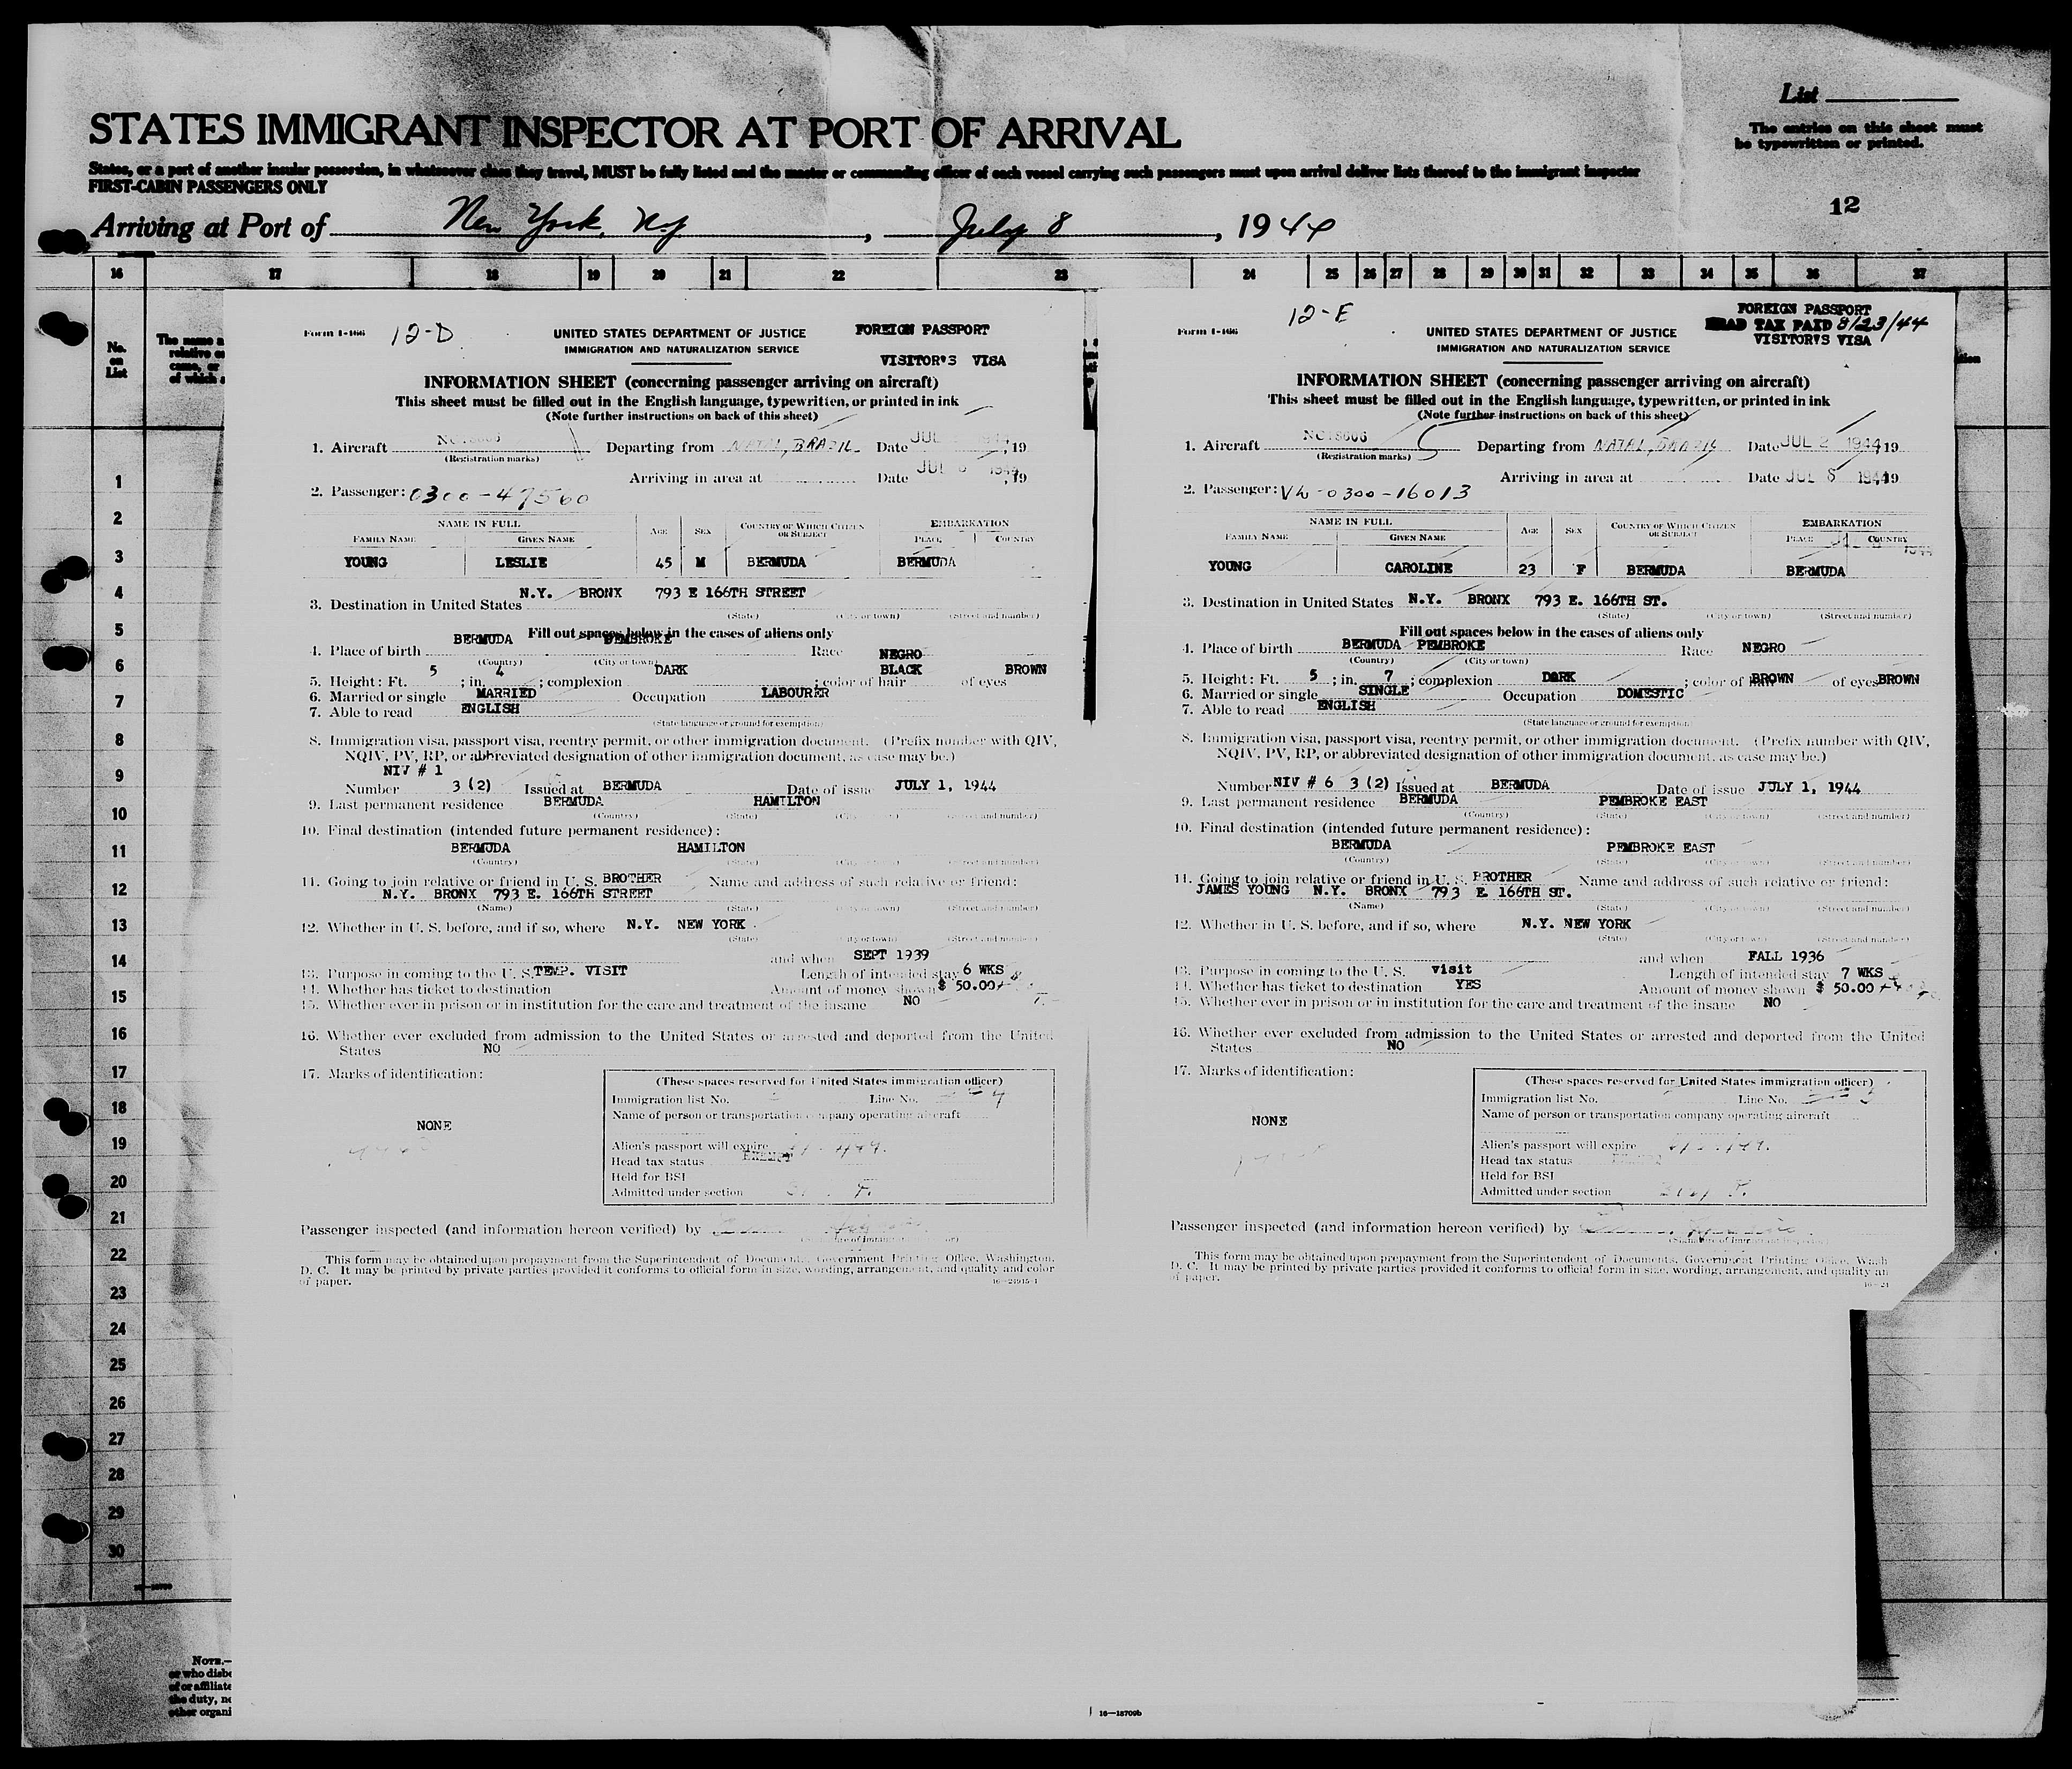 List
STATES IMMIGRANT INSPECTOR AT PORT OF ARRIVAL
The entries on this sheet must
be typewritten or printed.
States, or a part of another insular possession, in whatsoever class they travel, MUST be fully listed and the master or commanding officer of each vessel carrying such passengers must upon arrival deliver lists thereof to the immigrant inspector
FIRST-CABIN PASSENGERS ONLY
12
Arriving at Port of New York, NY, July 8, 1944
16 17 18 19 20 21 22 23 24 25 26 27 28 29 30 31 32 33 34 35 36 37
No.
on
List
The name a
relative or
came, or
of which a
1
2
3
4
5
6
7
8
9
10
11
12
13
14
15
16
17
18
19
20
21
22
23
24
25
26
27
28
29
30
Form I-466 12-D
UNITED STATES DEPARTMENT OF JUSTICE
IMMIGRATION AND NATURALIZATION SERVICE
FOREIGN PASSPORT
VISITOR'S VISA
INFORMATION SHEET (concerning passenger arriving on aircraft)
This sheet must be filled out in the English language, typewritten, or printed in ink
(Note further instructions on back of this sheet)
1. Aircraft NC18606 Departing from NATAL, BRAZIL Date JUL 1944, 19
(Registration marks)
Arriving in area at Date JUL 1944, 19
2. Passenger: 0300-47560
NAME IN FULL AGE SEX COUNTRY OF WHICH CITIZEN OR SUBJECT EMBARKATION
FAMILY NAME GIVEN NAME PLACE COUNTRY
YOUNG LESLIE 45 M BERMUDA BERMUDA
3. Destination in United States N.Y. BRONX 793 E 166TH STREET
(State) (City or town) (Street and number)
Fill out spaces below in the cases of aliens only
4. Place of birth BERMUDA PEMBROKE Race NEGRO
(Country) (City or town)
5. Height: Ft. 5; in. 4; complexion DARK; color of hair BLACK of eyes BROWN
6. Married or single MARRIED Occupation LABOURER
7. Able to read ENGLISH
(State language or ground for exemption)
8. Immigration visa, passport visa, reentry permit, or other immigration document. (Prefix number with QIV,
NQIV, PV, RP, or abbreviated designation of other immigration document, as case may be.)
NIV # 1
Number 3 (2) Issued at BERMUDA Date of issue JULY 1, 1944
9. Last permanent residence BERMUDA HAMILTON
(Country) (State) (City or town) (Street and number)
10. Final destination (intended future permanent residence):
BERMUDA HAMILTON
(Country) (State) (City or town) (Street and number)
11. Going to join relative or friend in U. S. BROTHER Name and address of such relative or friend:
N.Y. BRONX 793 E. 166TH STREET
(Name) (State) (City or town) (Street and number)
12. Whether in U. S. before, and if so, where N.Y. NEW YORK
(State) (City or town) (Street and number)
and when SEPT 1939
13. Purpose in coming to the U. S. TEMP. VISIT Length of intended stay 6 WKS
14. Whether has ticket to destination Amount of money shown $ 50.00
15. Whether ever in prison or in institution for the care and treatment of the insane NO
16. Whether ever excluded from admission to the United States or arrested and deported from the United
States NO
17. Marks of identification:
NONE
(These spaces reserved for United States immigration officer)
Immigration list No. Line No.
Name of person or transportation company operating aircraft
Alien's passport will expire
Head tax status EXEMPT
Held for BSI
Admitted under section
Passenger inspected (and information hereon verified) by
(Signature of immigrant inspector)
This form may be obtained upon prepayment from the Superintendent of Documents, Government Printing Office, Washington,
D. C. It may be printed by private parties provided it conforms to official form in size, wording, arrangement, and quality and color
of paper.
16-24915-1
Form I-466 12-E
UNITED STATES DEPARTMENT OF JUSTICE
IMMIGRATION AND NATURALIZATION SERVICE
FOREIGN PASSPORT
HEAD TAX PAID 8/23/44
VISITOR'S VISA
INFORMATION SHEET (concerning passenger arriving on aircraft)
This sheet must be filled out in the English language, typewritten, or printed in ink
(Note further instructions on back of this sheet)
1. Aircraft NC18606 Departing from NATAL, BRAZIL Date JUL 2 1944, 19
(Registration marks)
Arriving in area at Date JUL 1944, 19
2. Passenger: VW-0300-16013
NAME IN FULL AGE SEX COUNTRY OF WHICH CITIZEN OR SUBJECT EMBARKATION
FAMILY NAME GIVEN NAME PLACE COUNTRY
YOUNG CAROLINE 23 F BERMUDA BERMUDA
3. Destination in United States N.Y. BRONX 793 E. 166TH ST.
(State) (City or town) (Street and number)
Fill out spaces below in the cases of aliens only
4. Place of birth BERMUDA PEMBROKE Race NEGRO
(Country) (City or town)
5. Height: Ft. 5; in. 7; complexion DARK; color of hair BROWN of eyes BROWN
6. Married or single SINGLE Occupation DOMESTIC
7. Able to read ENGLISH
(State language or ground for exemption)
8. Immigration visa, passport visa, reentry permit, or other immigration document. (Prefix number with QIV,
NQIV, PV, RP, or abbreviated designation of other immigration document, as case may be.)
Number NIV # 6 3 (2) Issued at BERMUDA Date of issue JULY 1, 1944
9. Last permanent residence BERMUDA PEMBROKE EAST
(Country) (State) (City or town) (Street and number)
10. Final destination (intended future permanent residence):
BERMUDA PEMBROKE EAST
(Country) (State) (City or town) (Street and number)
11. Going to join relative or friend in U. S. BROTHER Name and address of such relative or friend:
JAMES YOUNG N.Y. BRONX 793 E. 166TH ST.
(Name) (State) (City or town) (Street and number)
12. Whether in U. S. before, and if so, where N.Y. NEW YORK
(State) (City or town) (Street and number)
and when FALL 1936
13. Purpose in coming to the U. S. visit Length of intended stay 7 WKS
14. Whether has ticket to destination YES Amount of money shown $ 50.00
15. Whether ever in prison or in institution for the care and treatment of the insane NO
16. Whether ever excluded from admission to the United States or arrested and deported from the United
States NO
17. Marks of identification:
NONE
(These spaces reserved for United States immigration officer)
Immigration list No. Line No.
Name of person or transportation company operating aircraft
Alien's passport will expire
Head tax status
Held for BSI
Admitted under section
Passenger inspected (and information hereon verified) by
(Signature of immigrant inspector)
This form may be obtained upon prepayment from the Superintendent of Documents, Government Printing Office, Wash
D. C. It may be printed by private parties provided it conforms to official form in size, wording, arrangement, and quality an
of paper.
16-24
NOTE.—
or who disbe
of or affiliate
the duty, ne
other organi
16—18709b